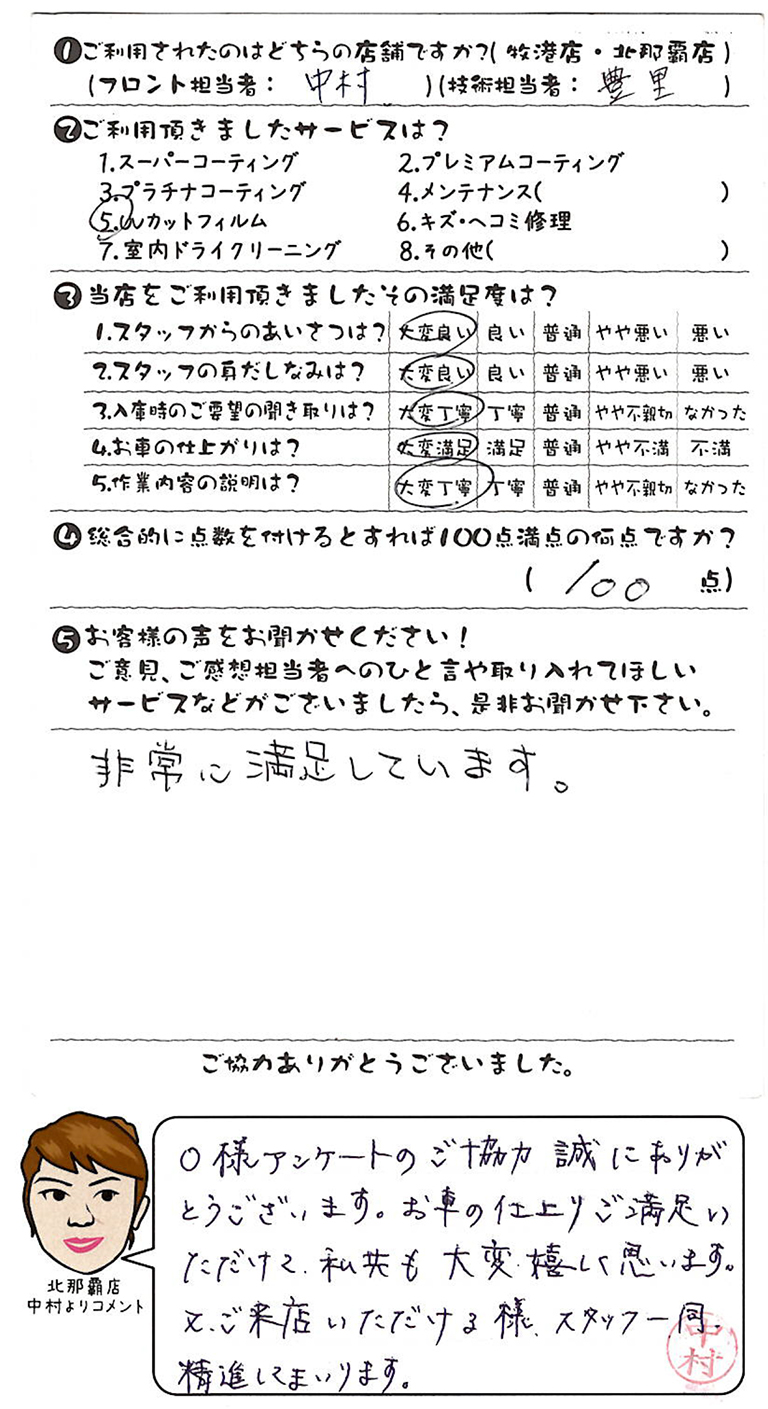 ❶ご利用されたのはどちらの店舗ですか?(牧港店・北那覇店)
(フロント担当者: 中村 )(技術担当者: 豊里 )
❷ご利用頂きましたサービスは?
1.スーパーコーティング 2.プレミアムコーティング
3.プラチナコーティング 4.メンテナンス( )
5.UVカットフィルム 6.キズ・ヘコミ修理
7.室内ドライクリーニング 8.その他( )
❸当店をご利用頂きましたその満足度は?
1.スタッフからのあいさつは? 大変良い 良い 普通 やや悪い 悪い
2.スタッフの身だしなみは? 大変良い 良い 普通 やや悪い 悪い
3.入庫時のご要望の聞き取りは? 大変丁寧 丁寧 普通 やや不親切 なかった
4.お車の仕上がりは? 大変満足 満足 普通 やや不満 不満
5.作業内容の説明は? 大変丁寧 丁寧 普通 やや不親切 なかった
❹総合的に点数を付けるとすれば100点満点の何点ですか?
( 100 点)
❺お客様の声をお聞かせください!
ご意見、ご感想担当者へのひと言や取り入れてほしい
サービスなどがございましたら、是非お聞かせ下さい。
非常に満足しています。
ご協力ありがとうございました。
○様アンケートのご協力 誠にありが
とうございます。お車の仕上りご満足い
ただけて、私共も大変嬉しく思います。
又、ご来店いただける様、スタッフ一同、
精進してまいります。
中村
北那覇店
中村よりコメント